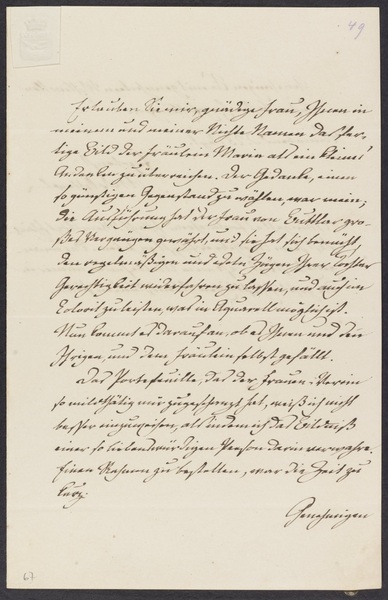 49
Erlauben Sie mir, gnädige Frau, Ihnen in
meinem und meiner Nichte Namen das fer-
tige Bild der Fräulein Marie als ein kleines
Andenken zu überreichen. Der Gedanke, einen
so günstigen Gegenstand zu wählen war mein;
die Ausführung hat der Frau von Buttlar gro-
ßes Vergnügen gewährt, und sie hat sich bemüht,
den regelmäßigen und edeln Zügen Ihrer Tochter
Gerechtigkeit widerfahren zu lassen, und auch im
Colorit zu leisten, was in Aquarell möglich ist.
Nun kommt es darauf an, ob es Ihnen und den
Ihrigen, und dem Fräulein selbst gefällt.
Das Portefeuille, das der Frauen-Verein
so mildthätig mir zugeschanzt hat, weiß ich nicht
besser einzuweihen, als indem ich das Bildniß
einer so liebenswürdigen Person darin verwahre.
Einen Rahmen zu bestellen, war die Zeit zu
kurz.
Genehmigen
67